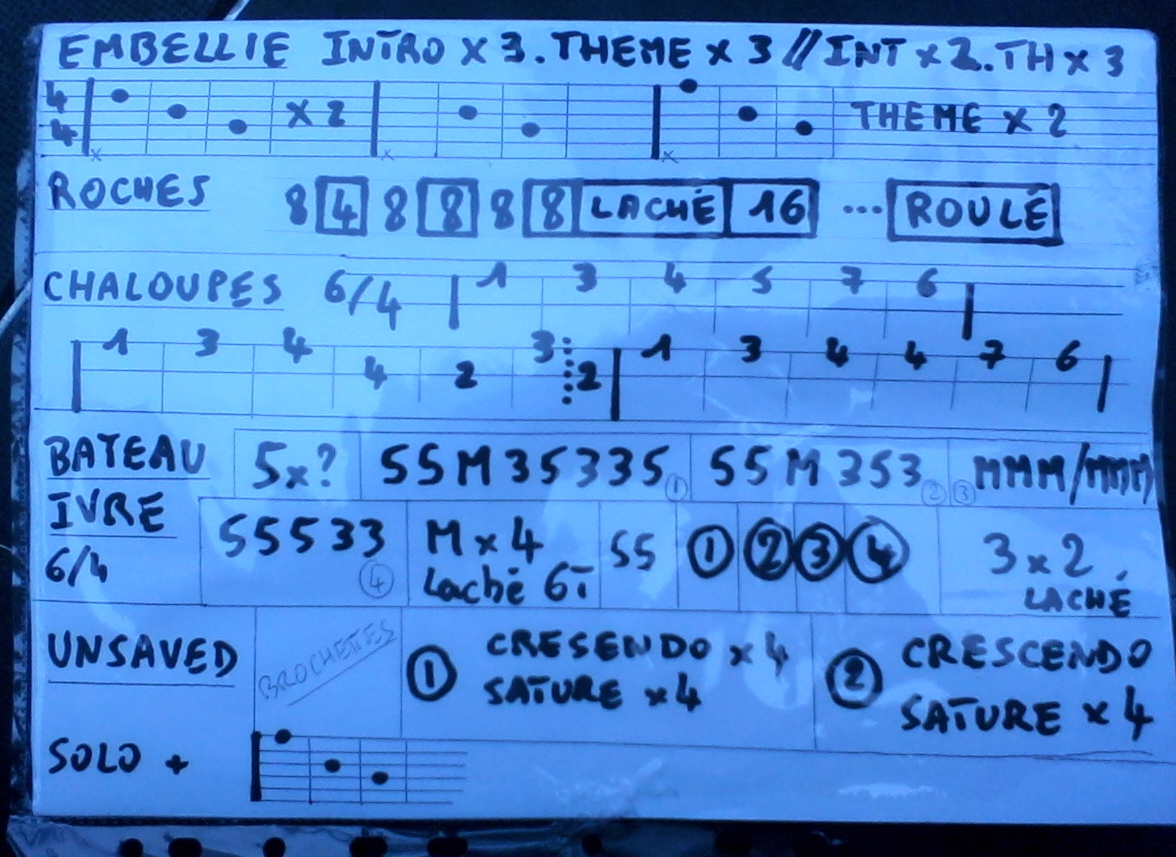 EMBELLIE INTRO x 3. THEME x 3 // INT x 2. TH x 3
4 4 x 2 THEME x 2
x x x
ROCHES 8 4 8 8 8 8 LACHÉ 16 ... ROULÉ
CHALOUPES 6/4 1 3 4 5 7 6
1 3 4 4 2 3 2 1 3 4 4 7 6
BATEAU 5x? 55M35335 ① 55M353 ② ③ MMM/MMM
IVRE 55533 ④ M x 4 55 ① ② ③ ④ 3 x 2
6/4 Laché 6T LACHÉ
UNSAVED BROCHETTES ① CRESENDO x 4 ② CRESCENDO
SATURE x 4 SATURE x 4
SOLO +